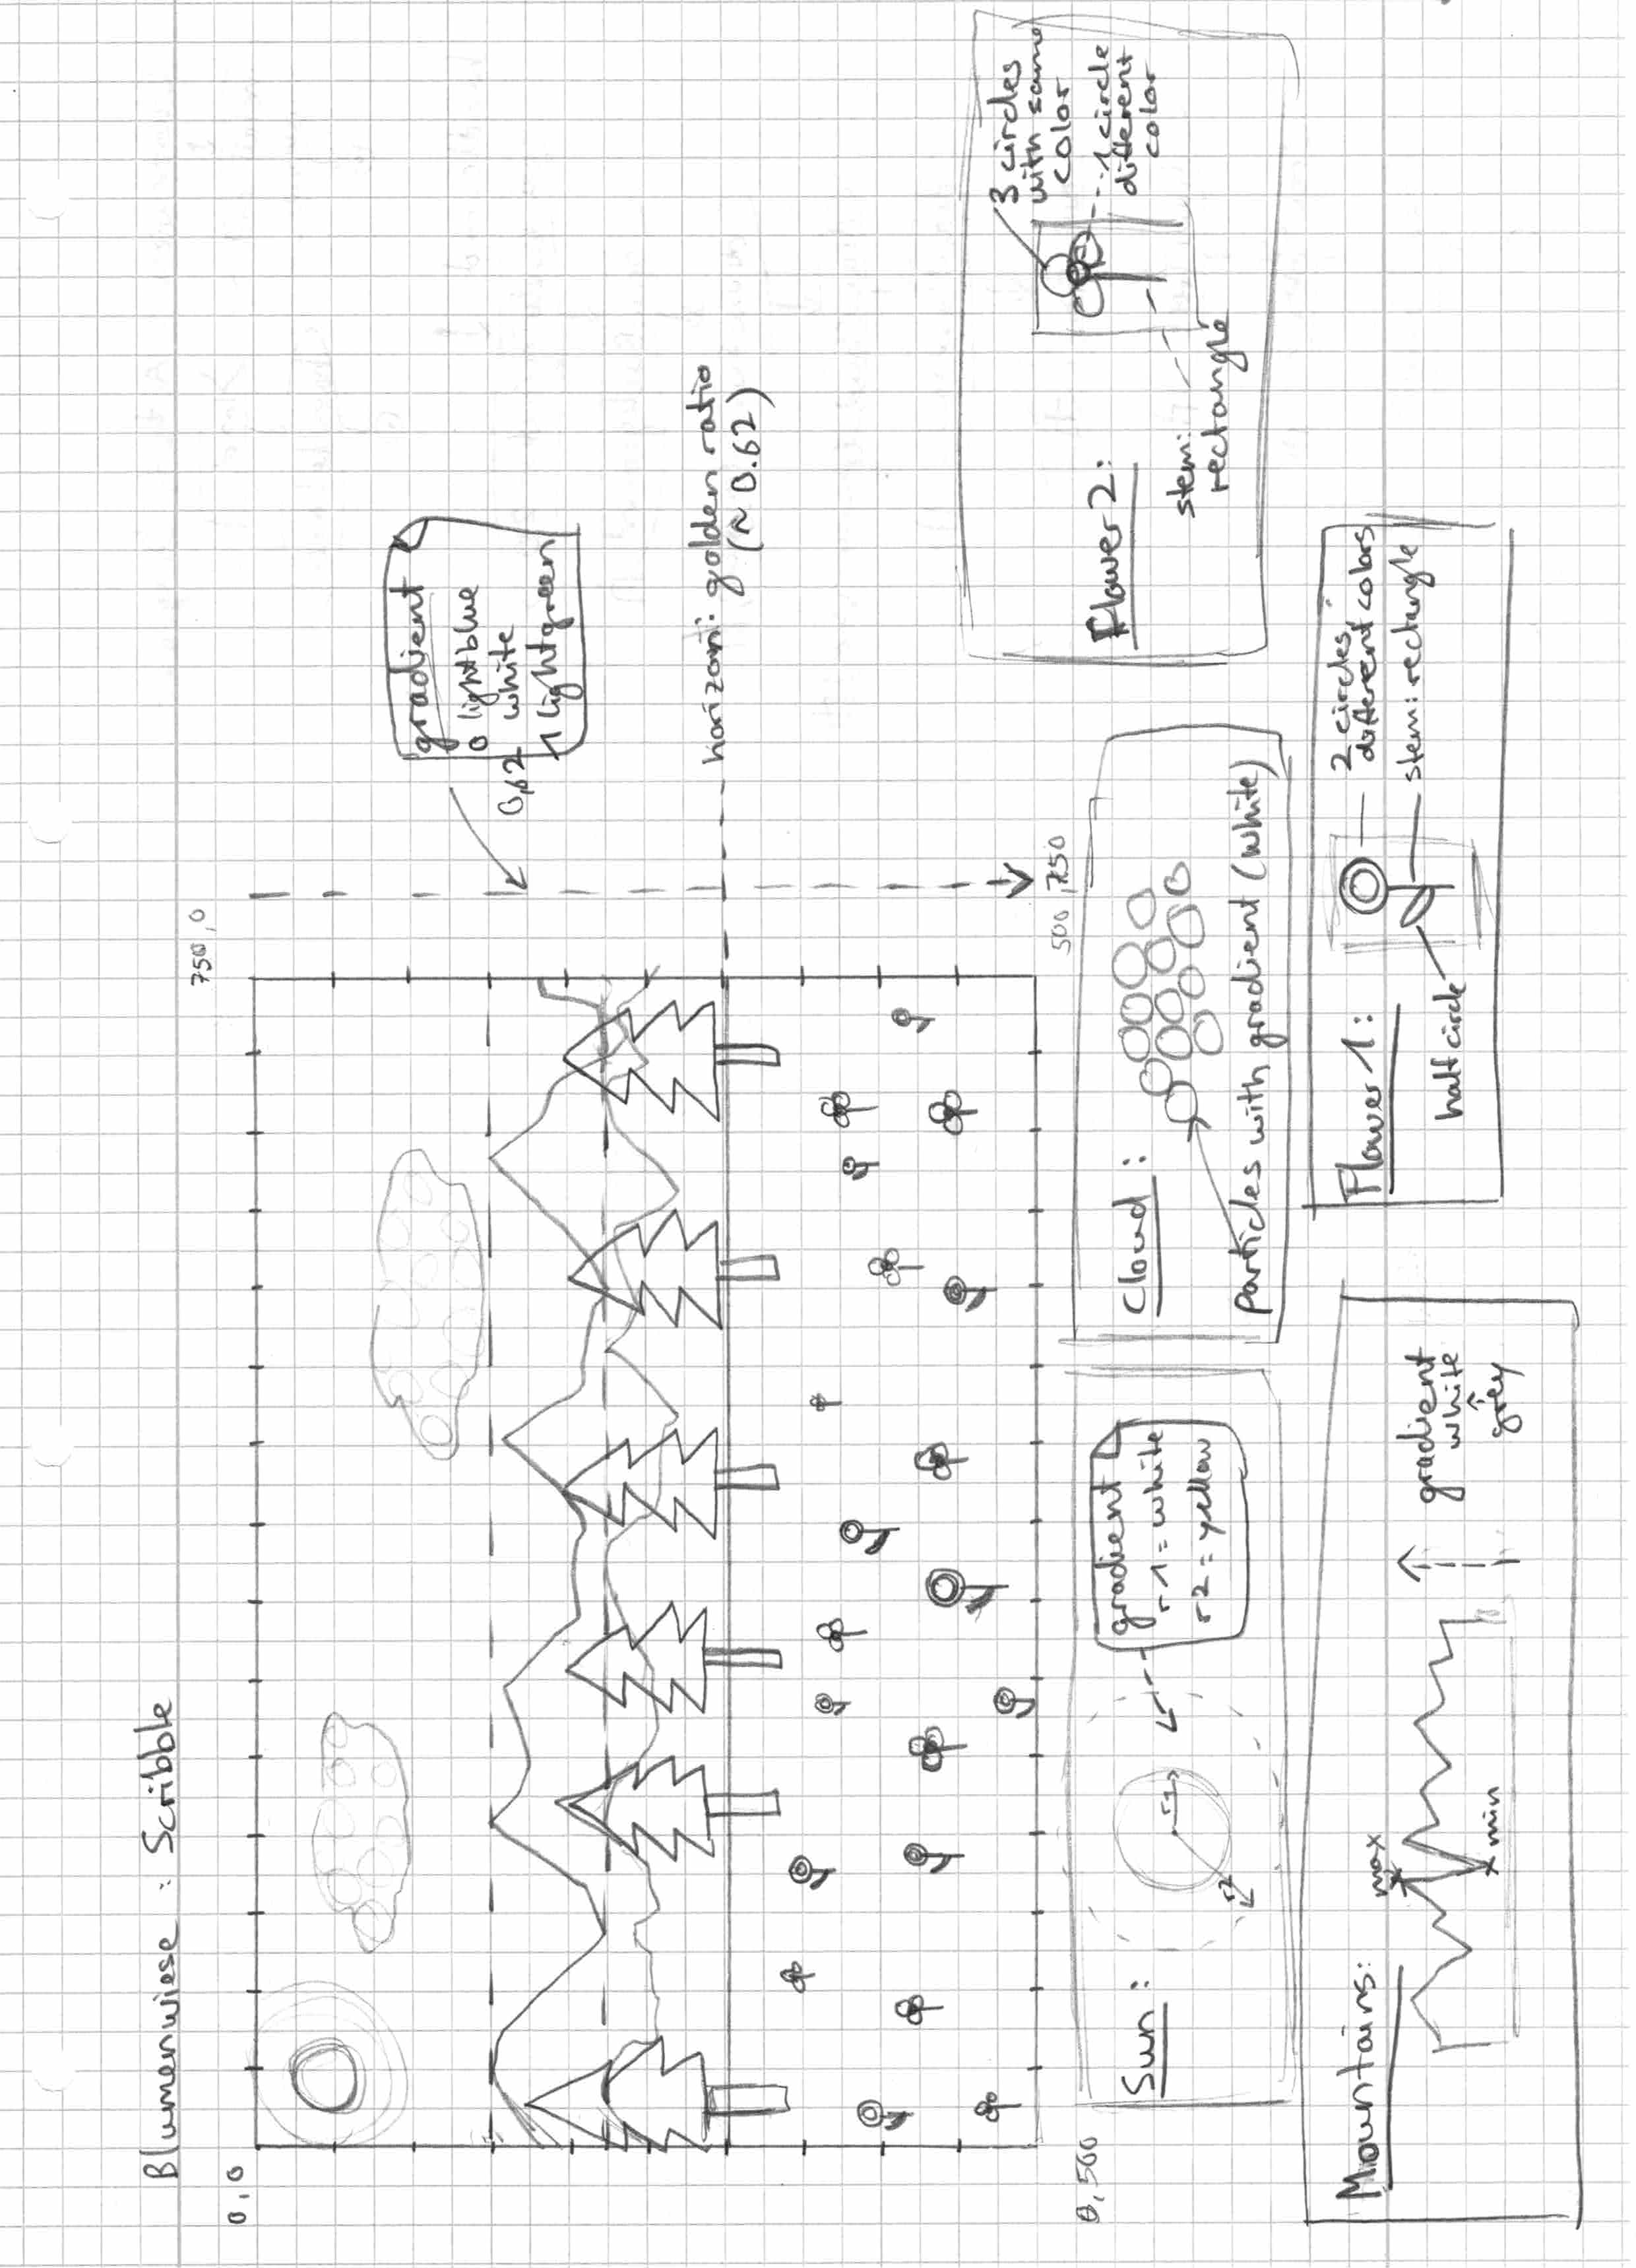 Blumenwiese : Scribble
750,0
0,0
gradient
0 lightblue
0,62 white
1 lightgreen
horizon: golden ratio
(≈ 0.62)
0,500
500,750
Sun:
r1
r2
gradient
r1 = white
r2 = yellow
Cloud:
particles with gradient (white)
Flower 2:
3 circles
with same
color
1 circle
different
color
stem:
rectangle
Mountains:
max
min
gradient
white
grey
Flower 1:
2 circles,
different colors
stem: rectangle
half circle